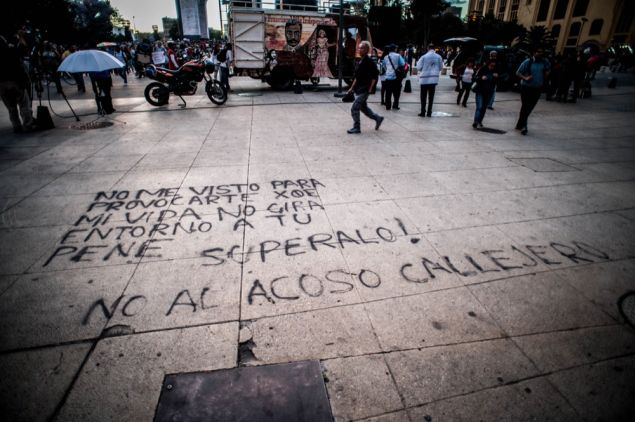 NO ME VISTO PARA
PROVOCARTE XQE
MI VIDA NO GIRA
ENTORNO A TU
PENE SUPERALO!
NO AL ACOSO CALLEJERO